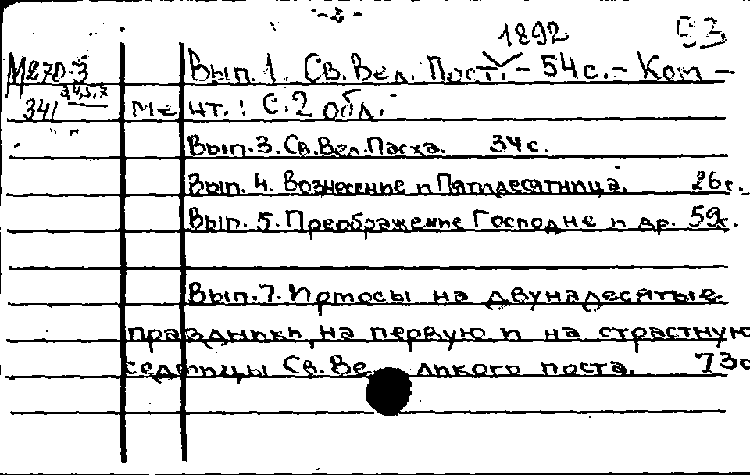 -2-
1892 93
М270-3 Вып.1. Св. Вел. Пост. - 54 с. - Ком -
341 мент.: с.2 обл.
Вып.3. Св. Вел. Пасха. 34 с.
Вып. 4. Вознесение и Пятидесятница. 26 с.
Вып. 5. Преображение Господне и др. 59 с.
Вып. 7. Ирмосы на двунадесятые
праздники, на первую и на страстную
седмицы Св. Великого поста. 73 с